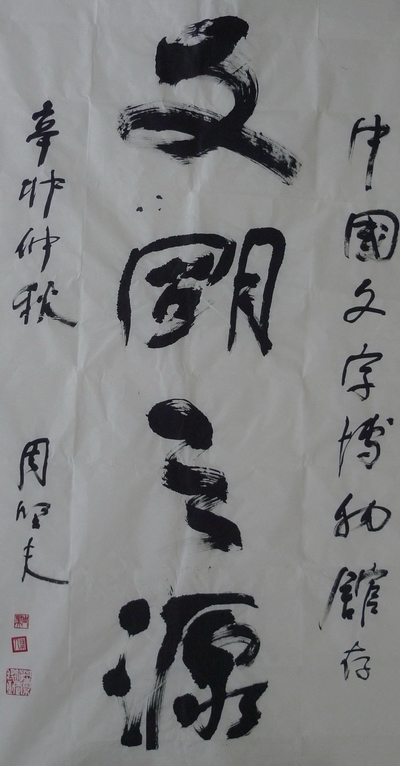 中國文字博物館存
文朙之源
辛卯仲秋
周
夫